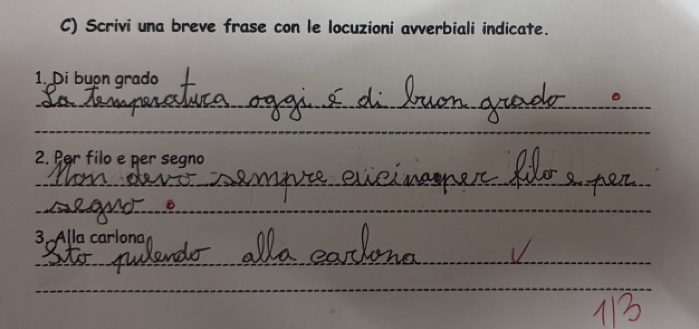 C) Scrivi una breve frase con le locuzioni avverbiali indicate.
1. Di buon grado
La temperatura oggi é di buon grado
2. Per filo e per segno
Non devo sempre cucinare per filo e per
segno
3. Alla carlona
Sto pulendo alla carlona
1/3